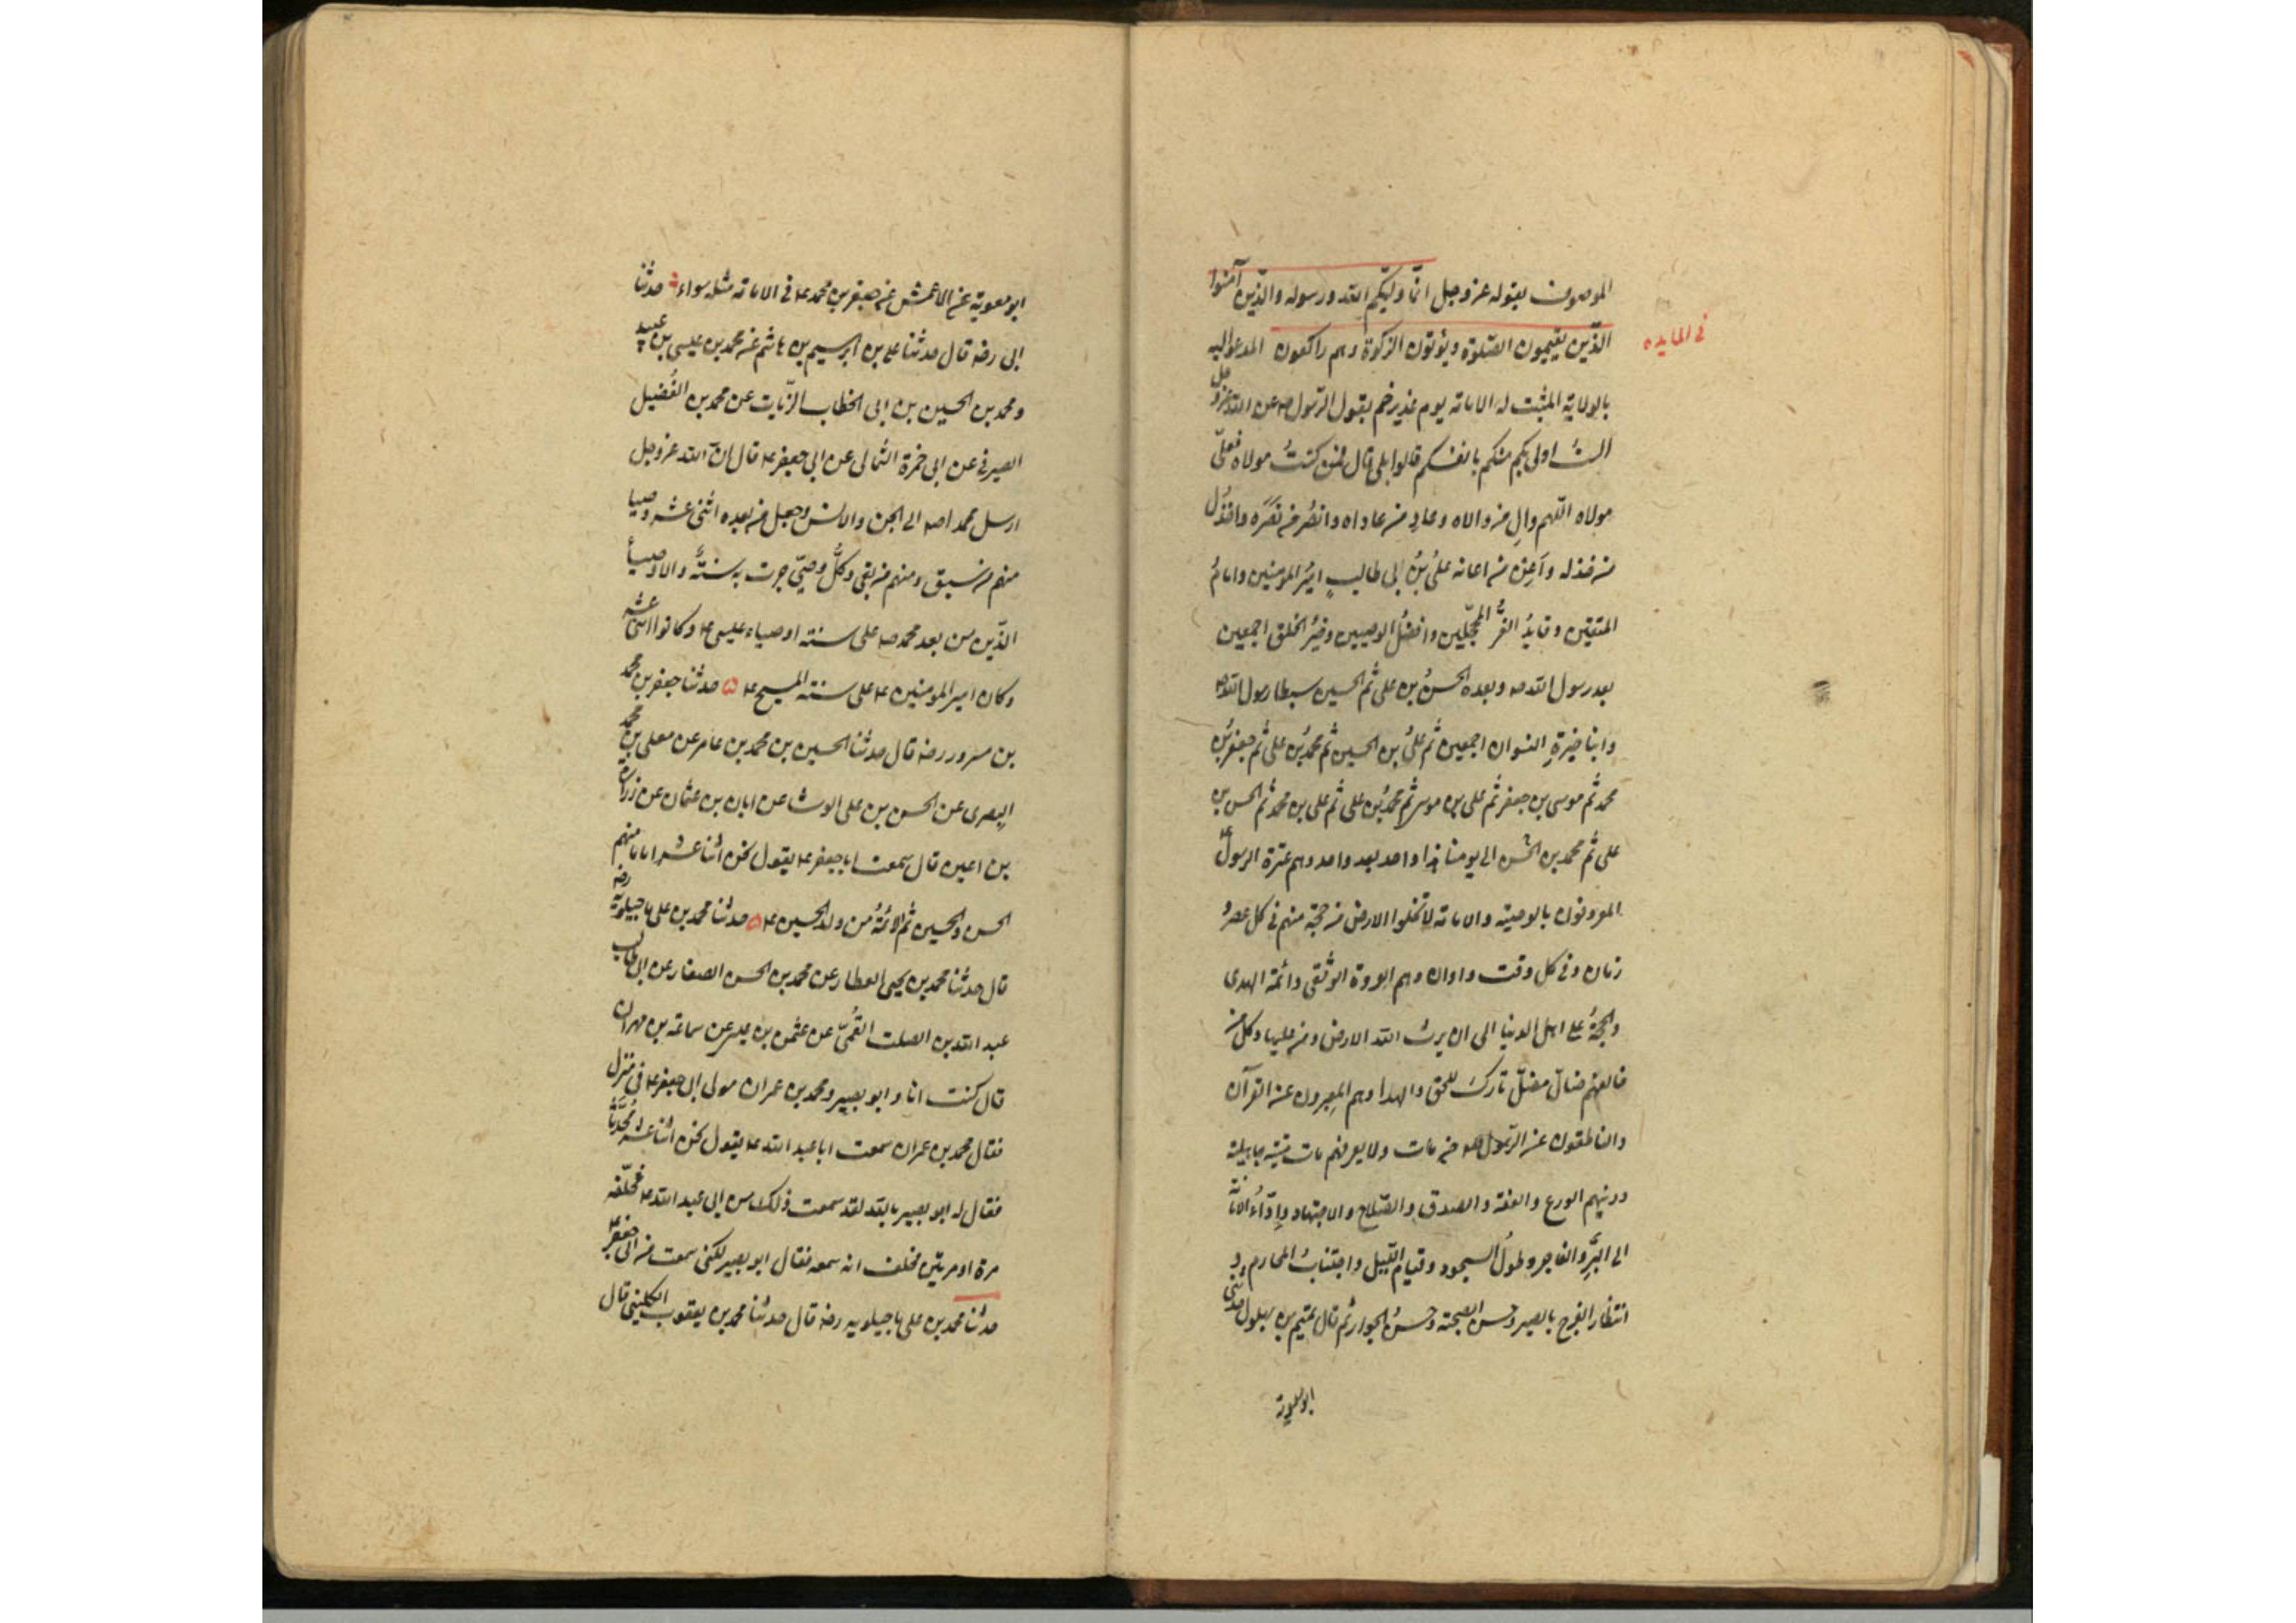 الموصوف بقوله عز وجل انّما وليّكم الله ورسوله والذين آمنوا
الذّين يقيمون الصّلوة ويؤتون الزكوة وهم راكعون المدعوّ اليه
في المايده
بالولاية المثبت له الامامة يوم غدير خم بقول الرّسول صه عن الله عز وجل
الستُ اولى بكم منكم بانفسكم قالوا بلى قال فمن كنتُ مولاه فعليّ
مولاه اللّهم والِ من والاه وعادِ من عاداه وانصُر من نصَرَه واخذُل
من خذله وأعِن من اعانه علىُّ بنُ ابى طالبٍ اميرُ المومنين وامامُ
المتقين وقايدُ الغرُّ المحجّلين وافضلُ الوصيين وخيرُ الخلق اجمعين
بعد رسول الله صه وبعده الحسنُ بن على ثم الحسين سبطا رسول الله صه
وابنا خيرةِ النسوان اجمعين ثم علىُّ بن الحسين ثم محمدُ بن على ثم جعفرُ بن
محمد ثم موسى بن جعفر ثم على بن موسى ثم محمدُ بن على ثم على بن محمد ثم الحسن بن
على ثم محمد بن الحسن الى يومنا هذا واحد بعد واحد وهم عترة الرسول ع
المعروفون بالوصية والامامة لا تخلوا الارض من حجة منهم فى كل عصر و
زمان وفى كل وقت واوان وهم العروة الوثقى وائمة الهدى
والحجةُ على اهل الدنيا الى ان يرث الله الارض ومن عليها وكل من
خالفهم ضالّ مضلّ تاركٌ للحق والهدا وهم المعبرون عن القرآن
والناطقون عن الرّسول صه من مات ولا يعرفهم مات ميتة جاهلية
ودينهم الورع والعفة والصدق والصّلاح والاجتهاد واداءُ الامانة
الى البَرِّ والفاجر وطولُ السجود وقيام اللّيل واجتنابُ المحارم و
انتظار الفرج بالصبر وحسن الصحبة وحسنُ الجوار ثم قال تميم بن بهلول حدثنى
ابو معوية
ابو معوية عن الاعمش عن جعفر بن محمد ع فى الامامة مثله سواء حدثنا
ابى رضه قال حدثنا على بن ابرهيم بن هاشم عن محمد بن عيسى بن عبيد
ومحمد بن الحسين بن ابى الخطاب الزّيات عن محمد بن الفُضيل
الصيرفى عن ابى حمزة الثمالى عن ابى جعفر ع قال انّ الله عز وجل
ارسل محمدا صه الى الجن والانس وجعل من بعده اثنى عشر وصيا
منهم من سبق ومنهم من بقى وكلُّ وصىّ جرت به سنةٌ والاوصياءُ
الذّين من بعد محمد صه على سنة اوصياء عيسى ع وكانوا اثنى عشر
وكان امير المومنين ع على سنة المسيح ع ه حدثنا جعفر بن محمد
بن مسرور رضه قال حدثنا الحسين بن محمد بن عامر عن معلى بن محمد
البصرى عن الحسن بن على الوشا عن ابان بن عثمان عن زرارة
بن اعين قال سمعت ابا جعفر ع يقول نحن اثنا عشر اماما منهم
الحسن والحسين ثم الائمةُ من ولد الحسين ع ه حدثنا محمد بن على ماجيلوية رضه
قال حدثنا محمد بن يحيى العطار عن محمد بن الحسن الصفار عن ابى طالب
عبد الله بن الصلت القُمىّ عن عثمن بن عيسى عن سماعة بن مهران
قال كنت انا وابو بصير ومحمد بن عمران مولى ابى جعفر ع فى منزل
فقال محمد بن عمران سمعت ابا عبد الله ع يقول نحن اثنا عشر مُحَدَّثاً
فقال له ابو بصير بالله لقد سمعت ذلك من ابى عبد الله ع فحلّفه
مرة او مرتين فحلف انه سمعه فقال ابو بصير لكنى سمعت من ابى جعفر ع
حدثنا محمد بن على ماجيلويه رضه قال حدثنا محمد بن يعقوب الكلينى قال